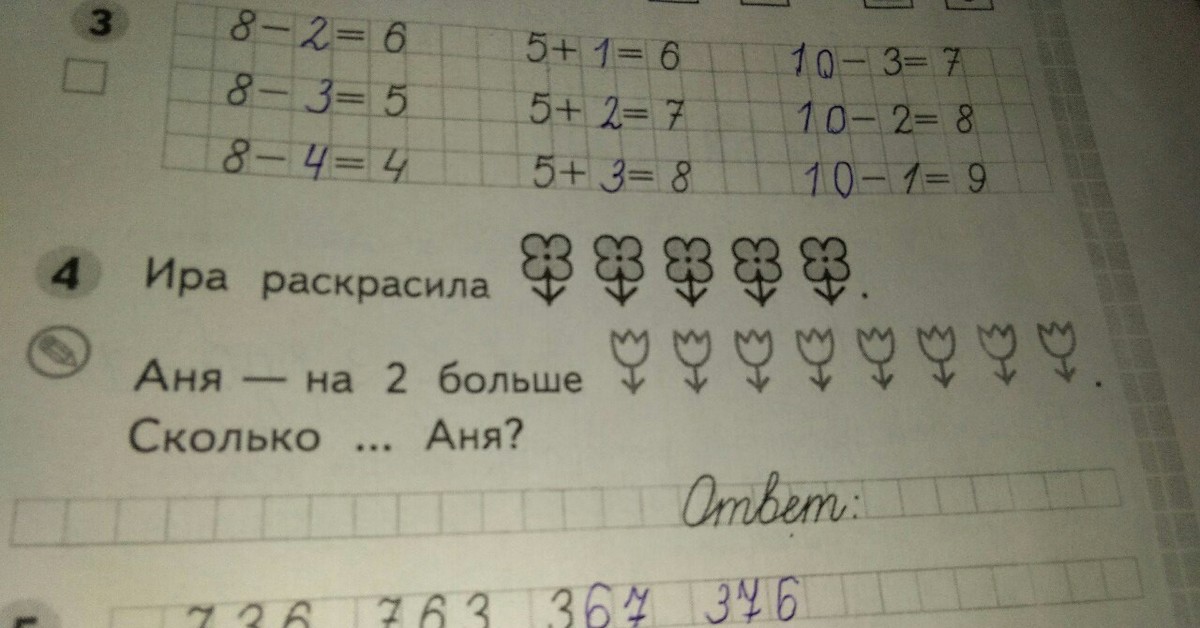 3 8 − 2 = 6 5 + 1 = 6 10 − 3 = 7
8 − 3 = 5 5 + 2 = 7 10 − 2 = 8
8 − 4 = 4 5 + 3 = 8 10 − 1 = 9
4 Ира раскрасила .
Аня — на 2 больше .
Сколько ... Аня?
Ответ:
5 736 763 367 376